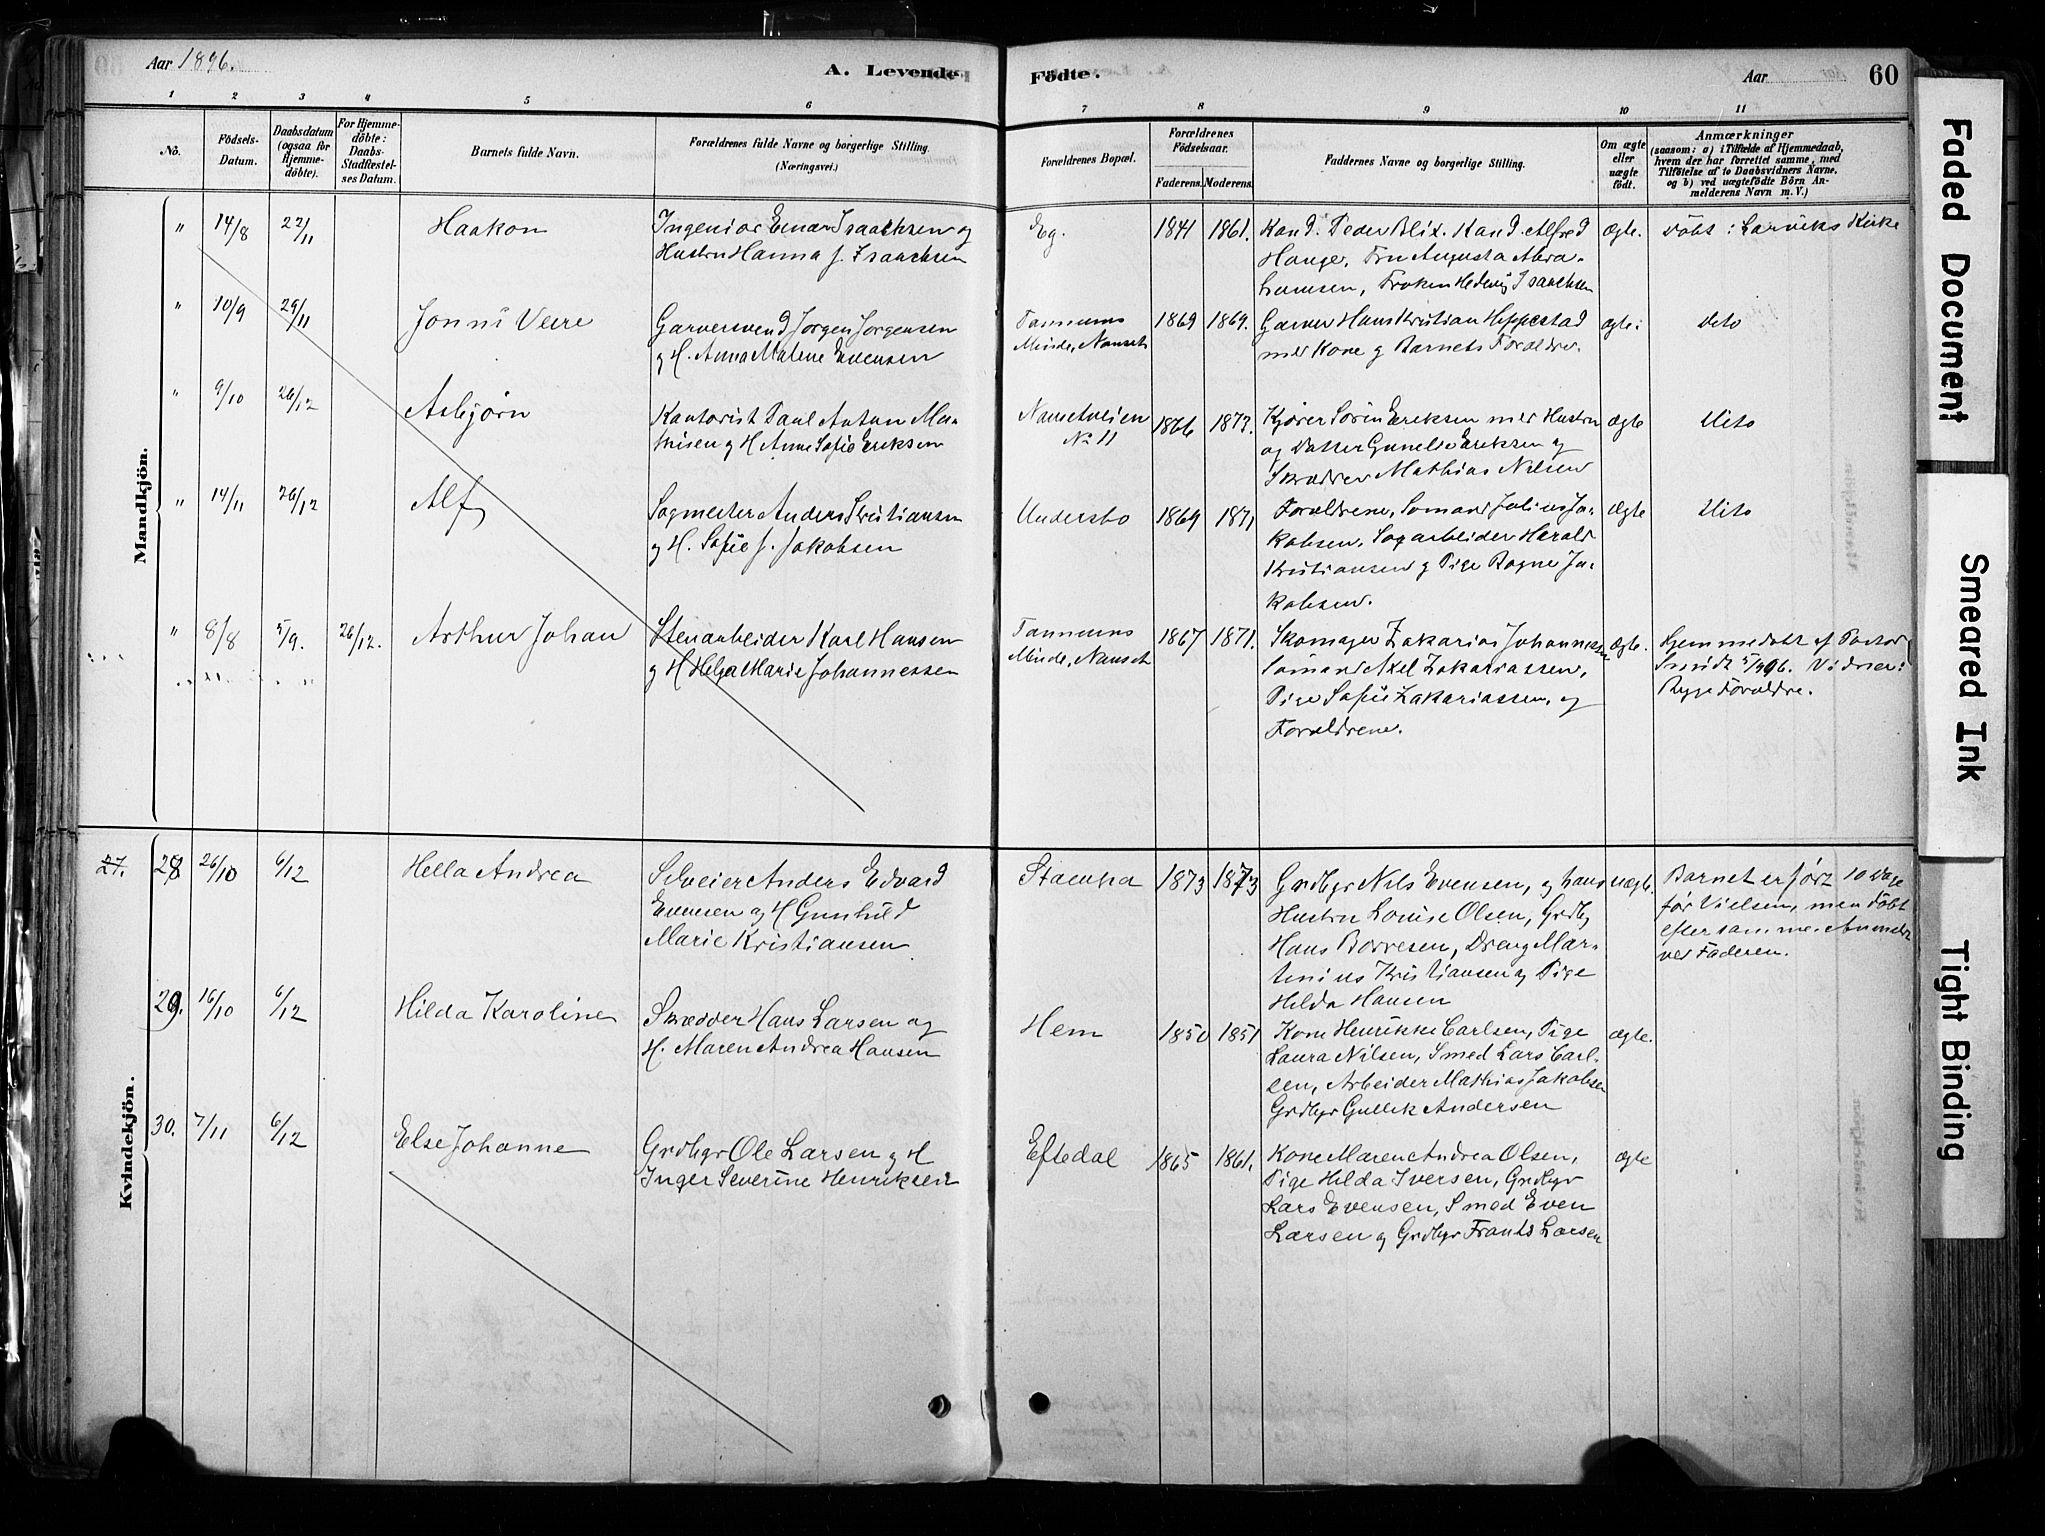 Aar 1896.
A. Levende Födte.
Aar
60
1 2 3 4 5 6 7 8 9 10 11
No.
Födsels-
Datum.
Daabsdatum
(ogsaa for
Hjemme-
döbte).
For Hjemme-
döbte:
Daabs-
Stadfæstel-
ses Datum.
Barnets fulde Navn.
Forældrenes fulde Navne og borgerlige Stilling.
(Næringsvei.)
Forældrenes Bopæl.
Forældrenes
Födselsaar.
Faderens. Moderens.
Faddernes Navne og borgerlige Stilling.
Om ægte
eller
uægte
födt.
Anmærkninger
(saasom: a) i Tilfælde af Hjemmedaab,
hvem der har forrettet samme, med
Tilföielse af to Daabsvidners Navne,
og b) ved uægtefödte Börn An-
melderens Navn m. V.)
Mandkjön.
" 14/8 22/11 Haakon
Ingeniør Einar Isaachsen og
Hustru Hanna f. Isaachsen
Eg. 1841 1861.
Kand. Peder Blix. Kand. Alfred
Hauge, Fru Augusta Abra-
hamsen, Frøken Hedevig Isaachsen
ægte. Døbt i Larviks Kirke
" 10/9 29/11 Jonni Veire
Garversvend Jørgen Jørgensen
og H. Anna Malene Evensen
Tannums
Minde, Nanset
1869 1869.
Garver Hans Kristian Heppestad
med Kone og Barnets Forældre.
ægte: Dito
" 9/10 26/12 Asbjørn
Kontorist Paul Anton Ma-
thisen og H Anne Sofie Eriksen
Nansetveien
No 11
1866 1873.
Kjører Søren Eriksen med Hustru
og Datter Gunelie Eriksen og
Skrædder Mathias Nilsen
ægte Dito
" 14/11 26/12 Alf
Sagmester Anders Kristiansen
og H. Sofie f. Jakobsen
Undersbo 1869 1871,
Forældrene, Sømand Julius Ja-
kobsen, Sagarbeider Harald
Kristiansen og Pige Ragne Ja-
kobsen.
ægte Dito
" 8/8 5/9. 26/12. Arthur Johan
Stenarbeider Karl Hansen
og H Helga Marie Johannessen
Tannums
Minde, Nanset
1867 1871.
Skomager Zakarias Johannesen
Sømand Axel Zakariassen,
Pige Sofie Zakariassen, og
Forældrene.
ægte.
Hjemmedøbt af Pastor
Smidt 5/9 96. Vidner:
Begge Forældre.
Kvindekjön.
27. 28 26/10 6/12 Hella Andrea
Selveier Anders Edvard
Evensen og H Gunhild
Marie Kristiansen
1873 1873
Grdbgr Nils Evensen, og hans
Hustru Louise Olsen, Grdbg
Hans Borresen, Dreng Mar-
tinius Kristiansen og Pige
Hilda Hansen
uægte.
Barnet er født 10 Dage
før Vielsen, men døbt
efter samme. Anmeldt
ved Faderen.
29. 16/10 6/12 Hilda Karoline
Skrædder Hans Larsen og
H. Maren Andrea Hansen
Hem 1850 1851
Kone Henrikke Carlsen, Pige
Laura Nilsen, Smed Lars Carl-
sen, Arbeider Mathias Jakobsen
Grdbgr Gullik Andersen
ægte.
30. 7/11 6/12 Else Johanne
Grdbgr Ole Larsen og H
Inger Severine Henriksen
Eftedal 1865 1861,
Kone Maren Andrea Olsen,
Pige Hilda Iversen, Grdbgr
Lars Evensen, Smed Even
Larsen og Grdbgr Frants Larsen
ægte
Faded Document
Smeared Ink
Tight Binding